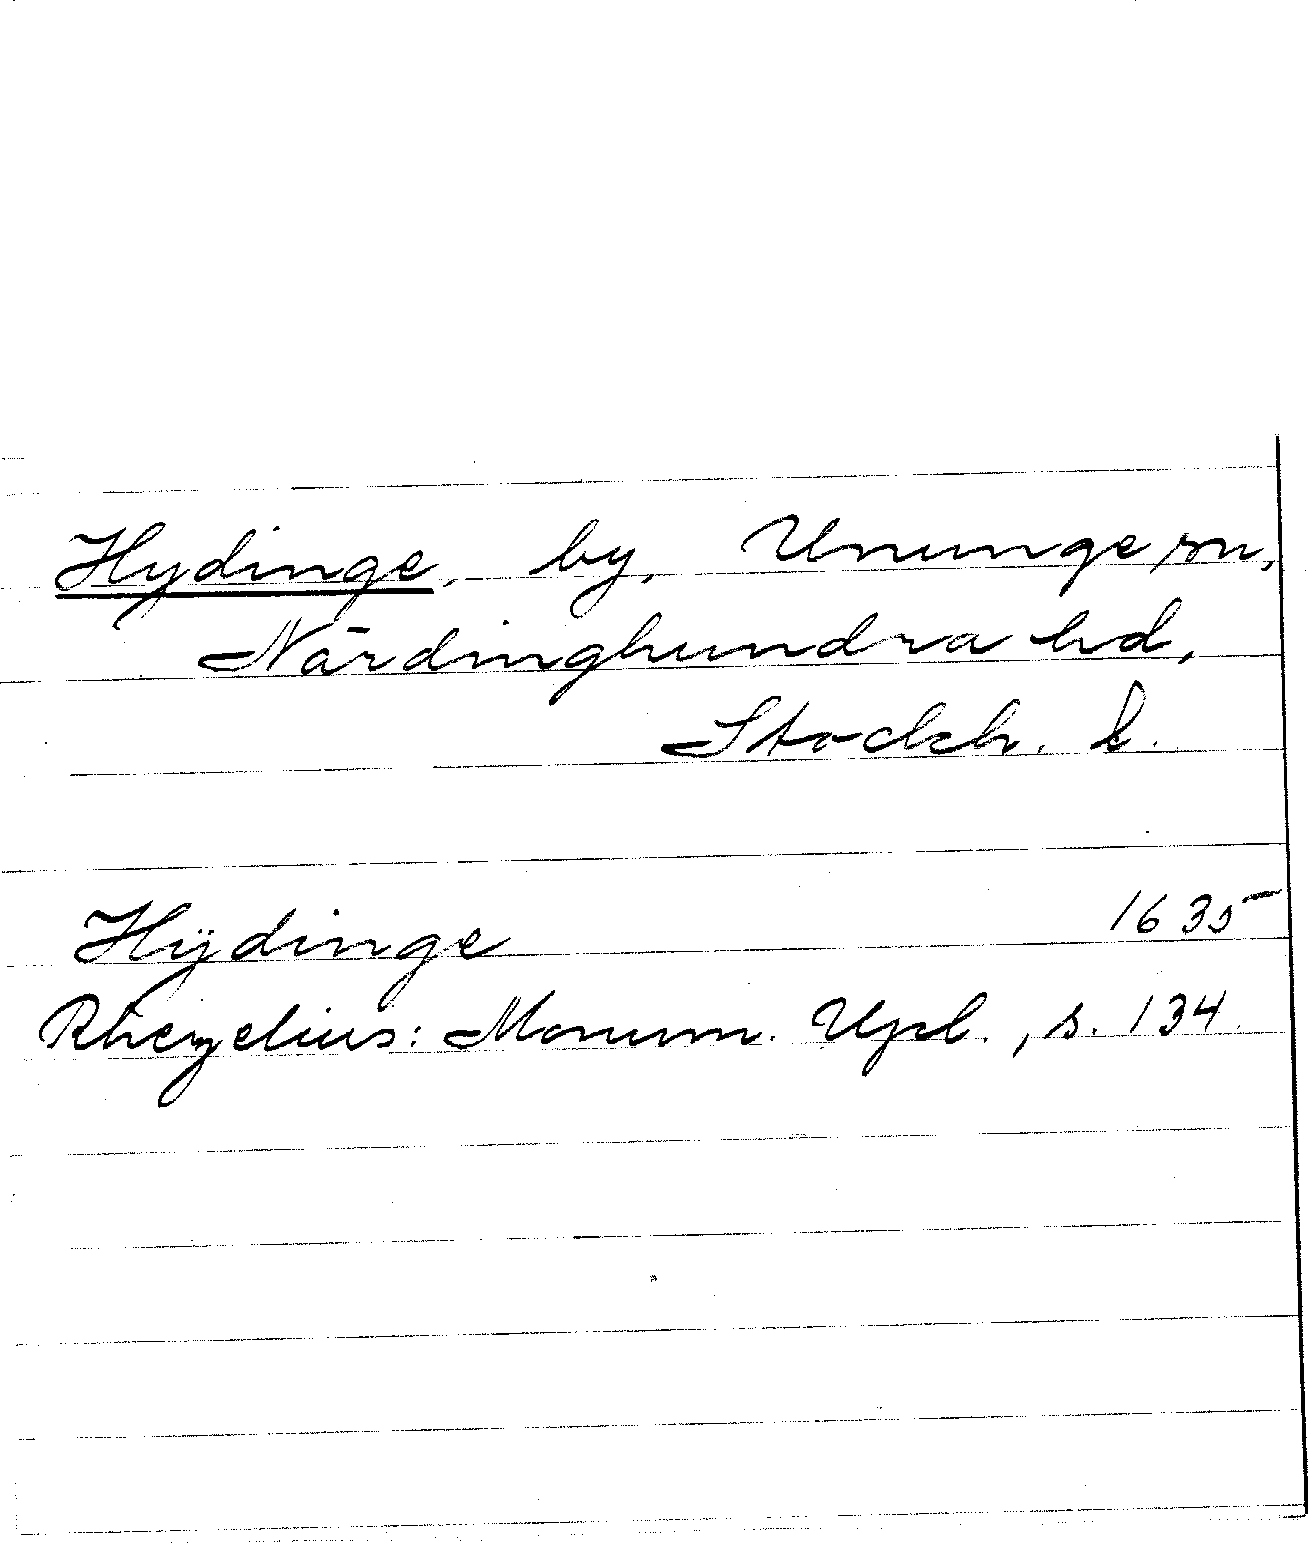 Hydinge, by, Ununge sn,
Närdinghundra hd,
Stockh. l.
Hÿdinge 1635
Rhezelius: Monum. Upl., s. 134.